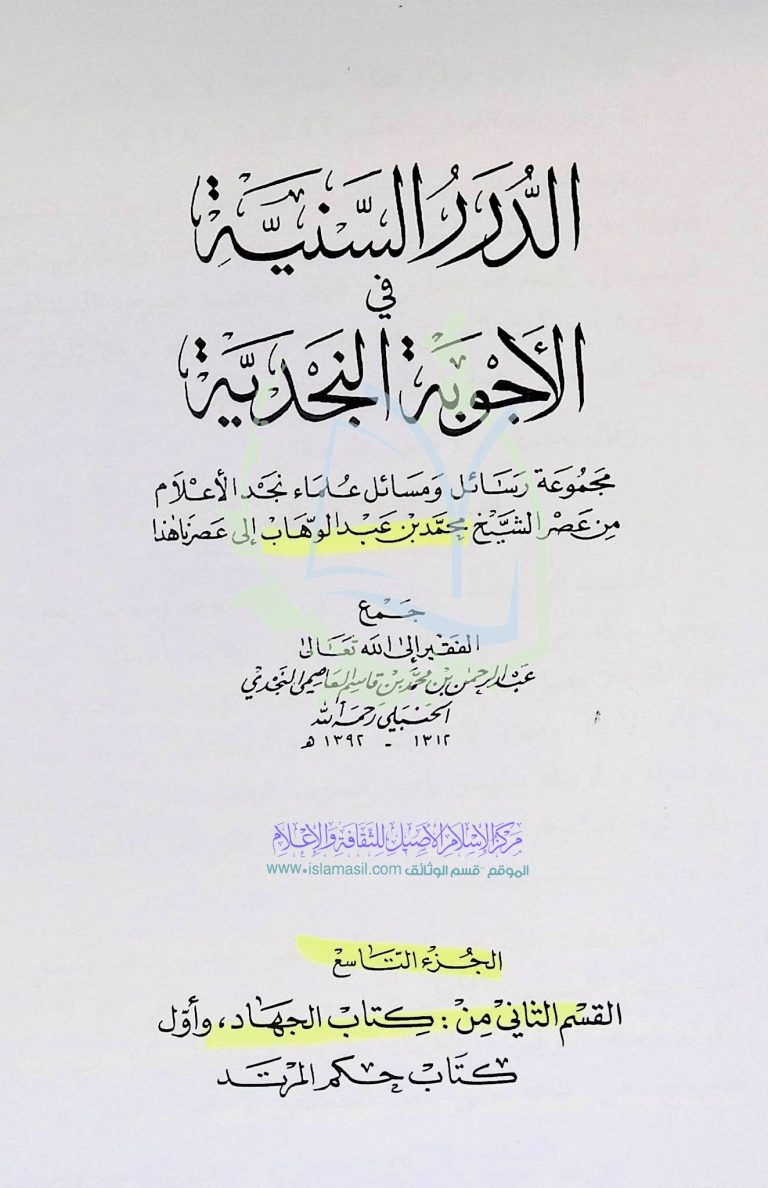 الدُّرَرُ السَّنِيَّةِ
في
الأَجْوِبَةِ النَّجْدِيَّةِ
مَجمُوعَة رسَائل وَمسَائل عُلمَاء نجد الأعْلَام
مِن عَصْر الشَّيْخ محَمَّد بن عَبد الوهَّاب إلى عَصرنا هٰذا
جَمْع
الفَقير إلى الله تعَالى
عَبْد الرحمٰن بن محمَّد بن قاسِم العَاصِمي النَّجْدي
الحَنبَلي رحمَهُ الله
١٣١٢ - ١٣٩٢ هـ
مركز الإسلام الأصيل للثقافة والإعلام
الموقع - قسم الوثائق www.islamasil.com
الجُزء التّاسع
القسم الثاني مِنْ : كِتَاب الجهَاد ، وأوّل
كتَاب حكم المرتَد